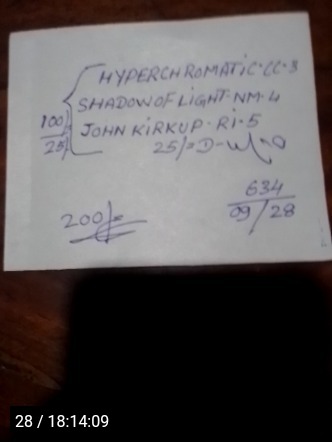 HYPERCHROMATIC-CC-8
SHADOW OF LIGHT-NM-4
JOHN KIRKUP-RI-5
100/
25/
25/= D-W
200/=
634
09/28
28 / 18:14:09